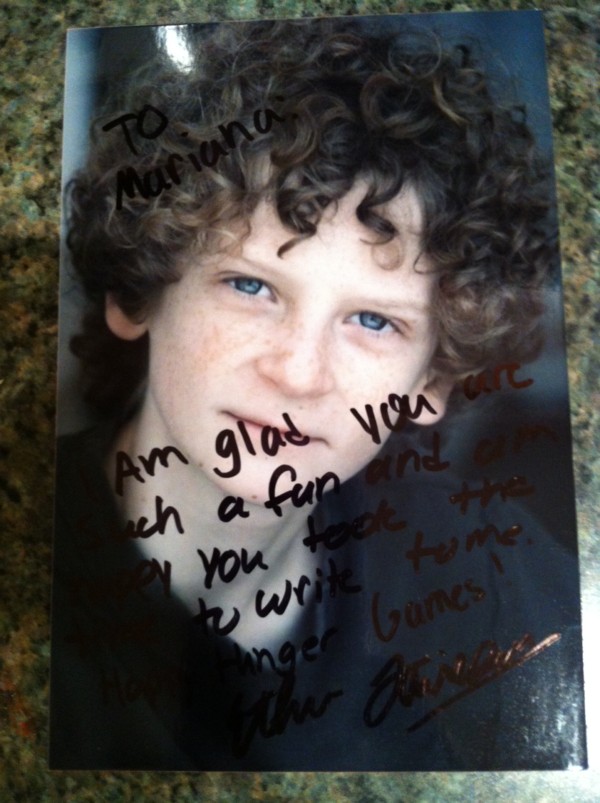 TO
Mariana:
I Am glad you are
Such a fun and am
happy you took the
time to write to me.
Happy Hunger Games!